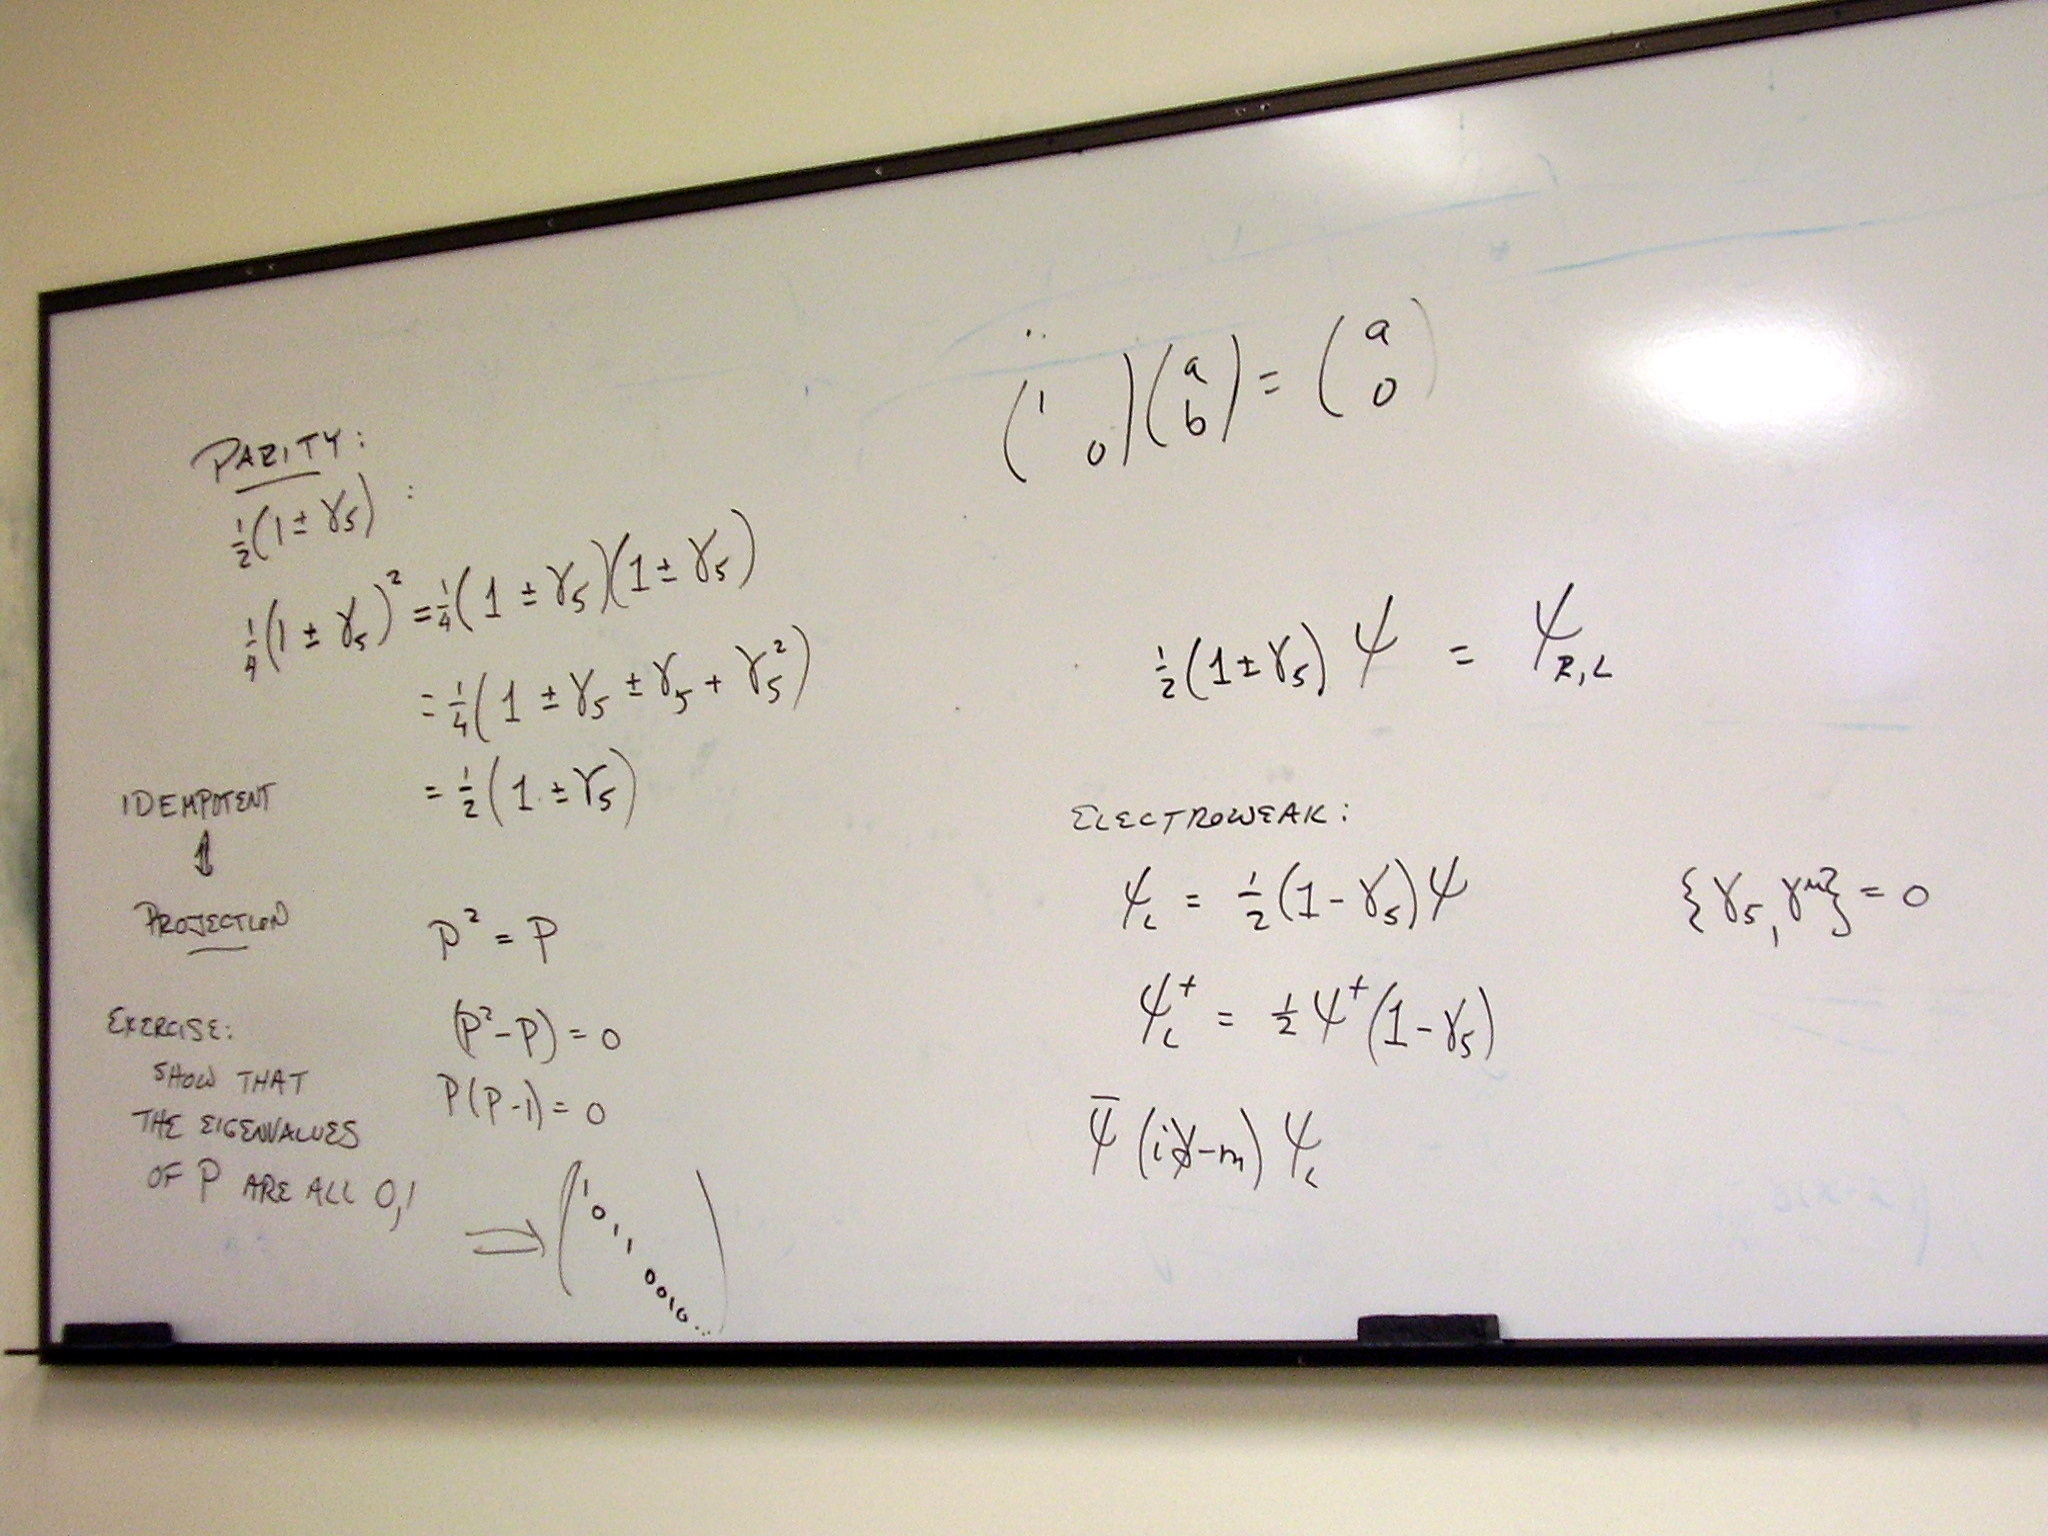 PARITY:
½(1 ± γ₅) :
¼(1 ± γ₅)² = ¼(1 ± γ₅)(1 ± γ₅)
= ¼(1 ± γ₅ ± γ₅ + γ₅²)
= ½(1 ± γ₅)
IDEMPOTENT
⇕
PROJECTION
P² = P
(P² - P) = 0
P(P - 1) = 0
EXERCISE:
SHOW THAT
THE EIGENVALUES
OF P ARE ALL 0,1
⇒ ( 1 0 1 1 0 0 1 0 ... )
( 1 0 ) ( a b ) = ( a 0 )
½(1 ± γ₅) ψ = ψ R,L
ELECTROWEAK:
ψ_L = ½(1 - γ₅)ψ {γ₅, γ^μ} = 0
ψ_L⁺ = ½ψ⁺(1 - γ₅)
ψ̄ (i∂̸ - m) ψ_L